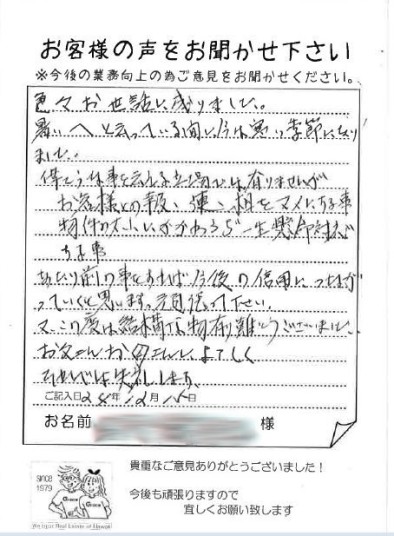 お客様の声をお聞かせ下さい
※今後の業務向上の為ご意見をお聞かせください。
色々お世話に成りました。
暑い へと云っている間に今は寒い季節になり
ました。
偉そうな事を云える立場では有りませんが
お客様との報、連、相をマメにする事
物件の大小にかかわらず一生懸命
する事
当たり前の事をすれば今後の信用につながっ
っていくと思います。頑張って下さい。
この度は結構な物有難うございました。
お父さんお母さんによろしく
それでは失礼します。
ご記入日 24年12月 日
お名前 様
SINCE
1979
貴重なご意見ありがとうございました!
今後も頑張りますので
宜しくお願い致します